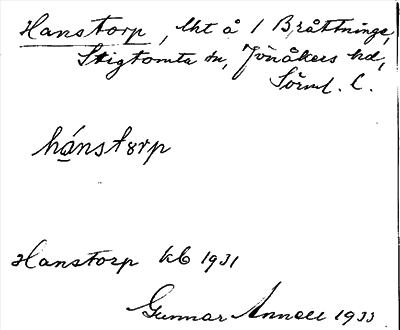 Hanstorp, lht å 1 Bråttninge,
Stigtomta sn, Jönåkers hd,
Sörml. l.
hánstɜrp
Hanstorp kb 1931
Gunnar Annell 1933